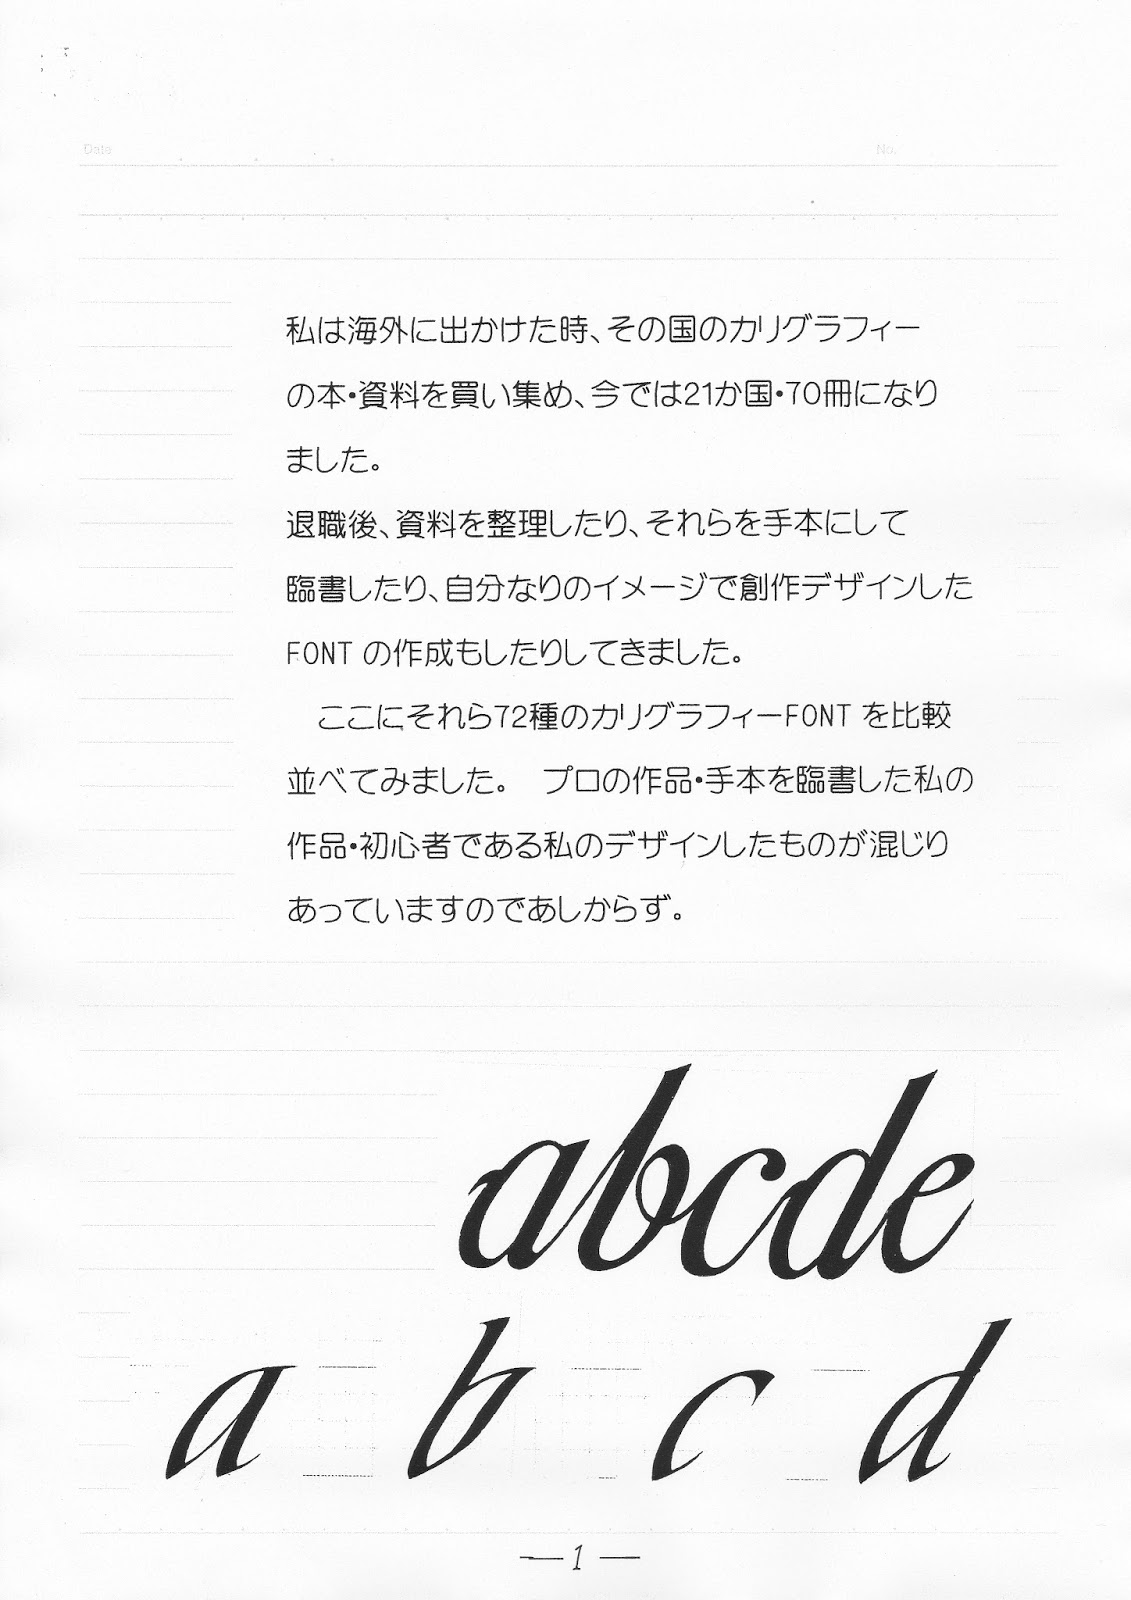 Date No.
私は海外に出かけた時、その国のカリグラフィー
の本・資料を買い集め、今では21か国・70冊になり
ました。
退職後、資料を整理したり、それらを手本にして
臨書したり、自分なりのイメージで創作デザインした
FONT の作成もしたりしてきました。
　ここにそれら72種のカリグラフィーFONT を比較
並べてみました。　プロの作品・手本を臨書した私の
作品・初心者である私のデザインしたものが混じり
あっていますのであしからず。
abcde
a b c d
— 1 —